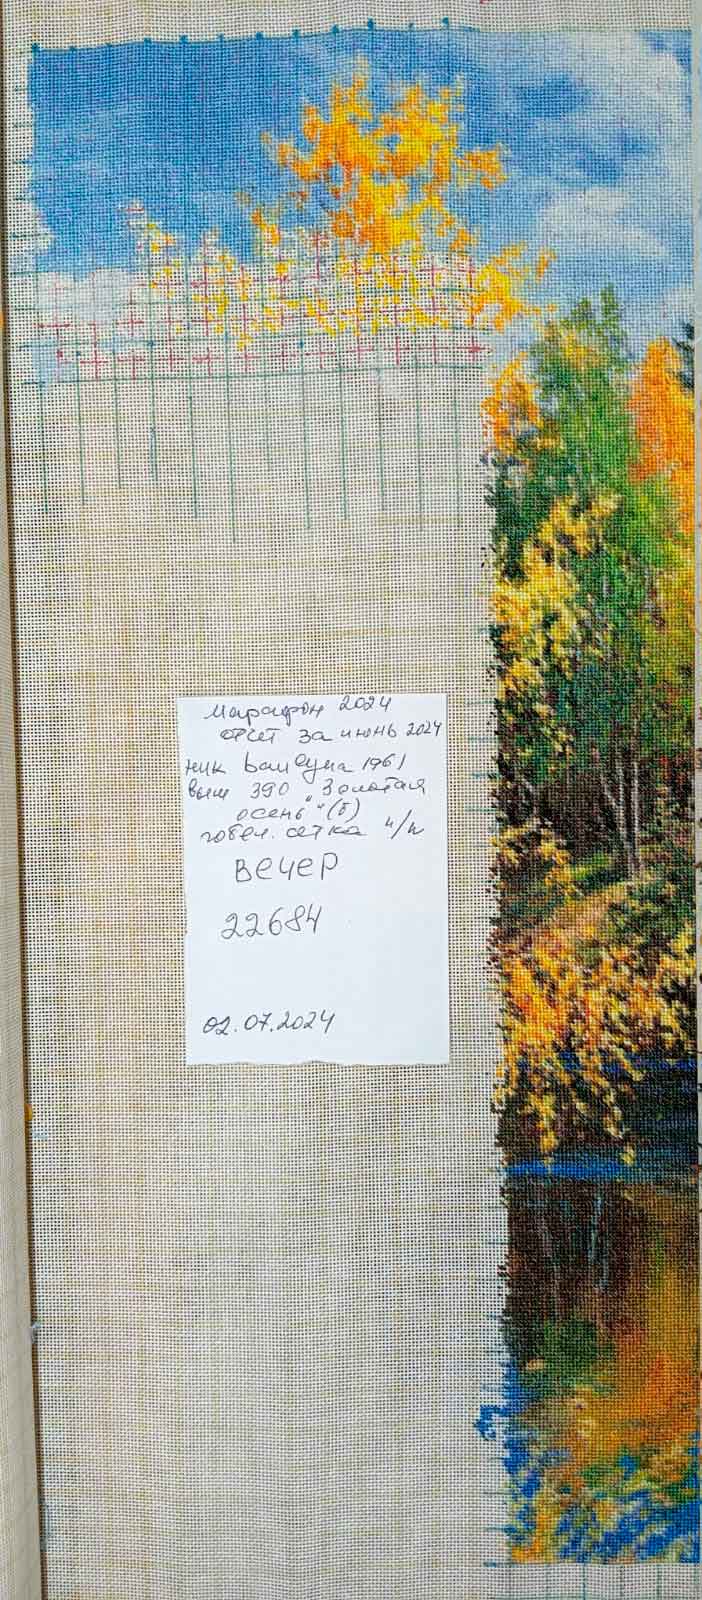 Марафон 2024
отчет за июнь 2024
ник Валеула 1961
выш 390 "Золотая
осень" (б)
гобел. сетка н/н
вечер
22684
02.07.2024